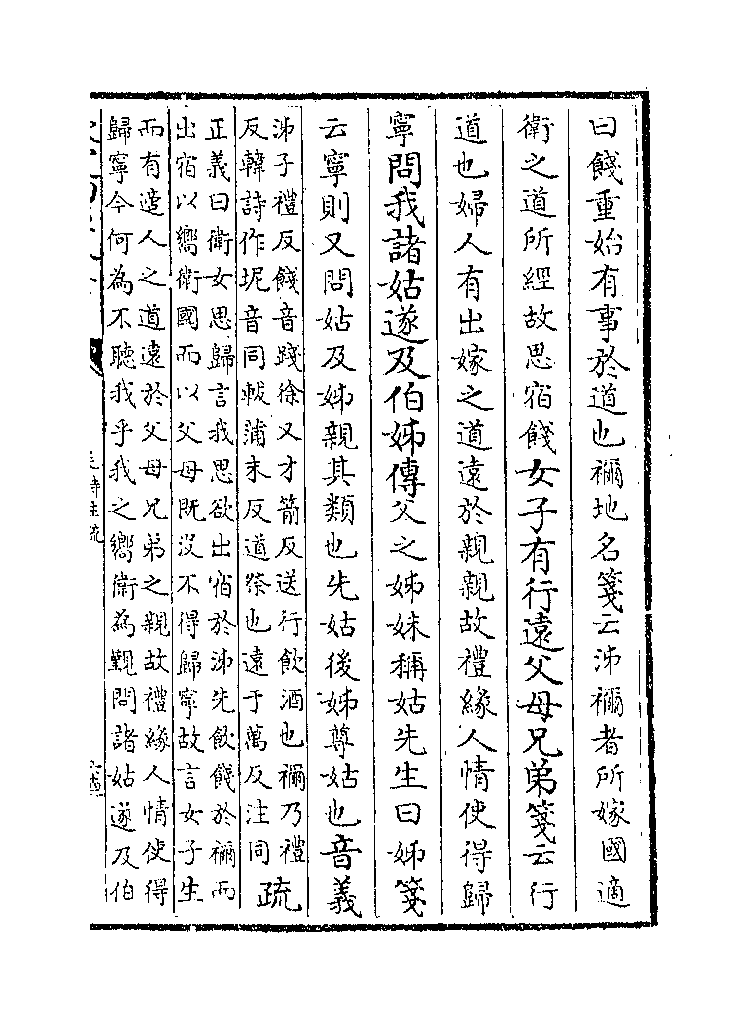 曰餞重始有事於道也禰地名箋云泲禰者所嫁國適
衛之道所經故思宿餞女子有行遠父母兄弟箋云行
道也婦人有出嫁之道遠於親親故禮緣人情使得歸
寧問我諸姑遂及伯姊傳父之姊妹稱姑先生曰姊箋
云寧則又問姑及姊親其類也先姑後姊尊姑也音義
泲子禮反餞音踐徐又才箭反送行飲酒也禰乃禮
反韓詩作坭音同軷蒲末反道祭也遠于萬反注同
疏
正義曰衛女思歸言我思欲出宿於泲先飲餞於禰而
出宿以嚮衛國而以父母既没不得歸寧故言女子生
而有適人之道遠於父母兄弟之親故禮緣人情使得
歸寧今何為不聽我乎我之嚮衛為覲問諸姑遂及伯
毛詩注疏